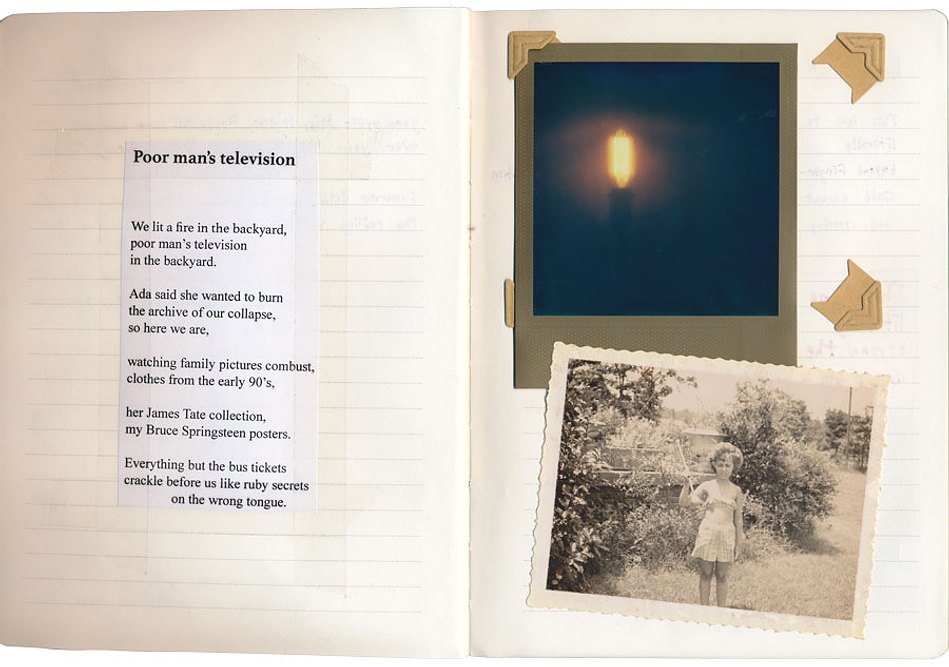 Poor man's television
We lit a fire in the backyard,
poor man's television
in the backyard.
Ada said she wanted to burn
the archive of our collapse,
so here we are,
watching family pictures combust,
clothes from the early 90's,
her James Tate collection,
my Bruce Springsteen posters.
Everything but the bus tickets
crackle before us like ruby secrets
on the wrong tongue.